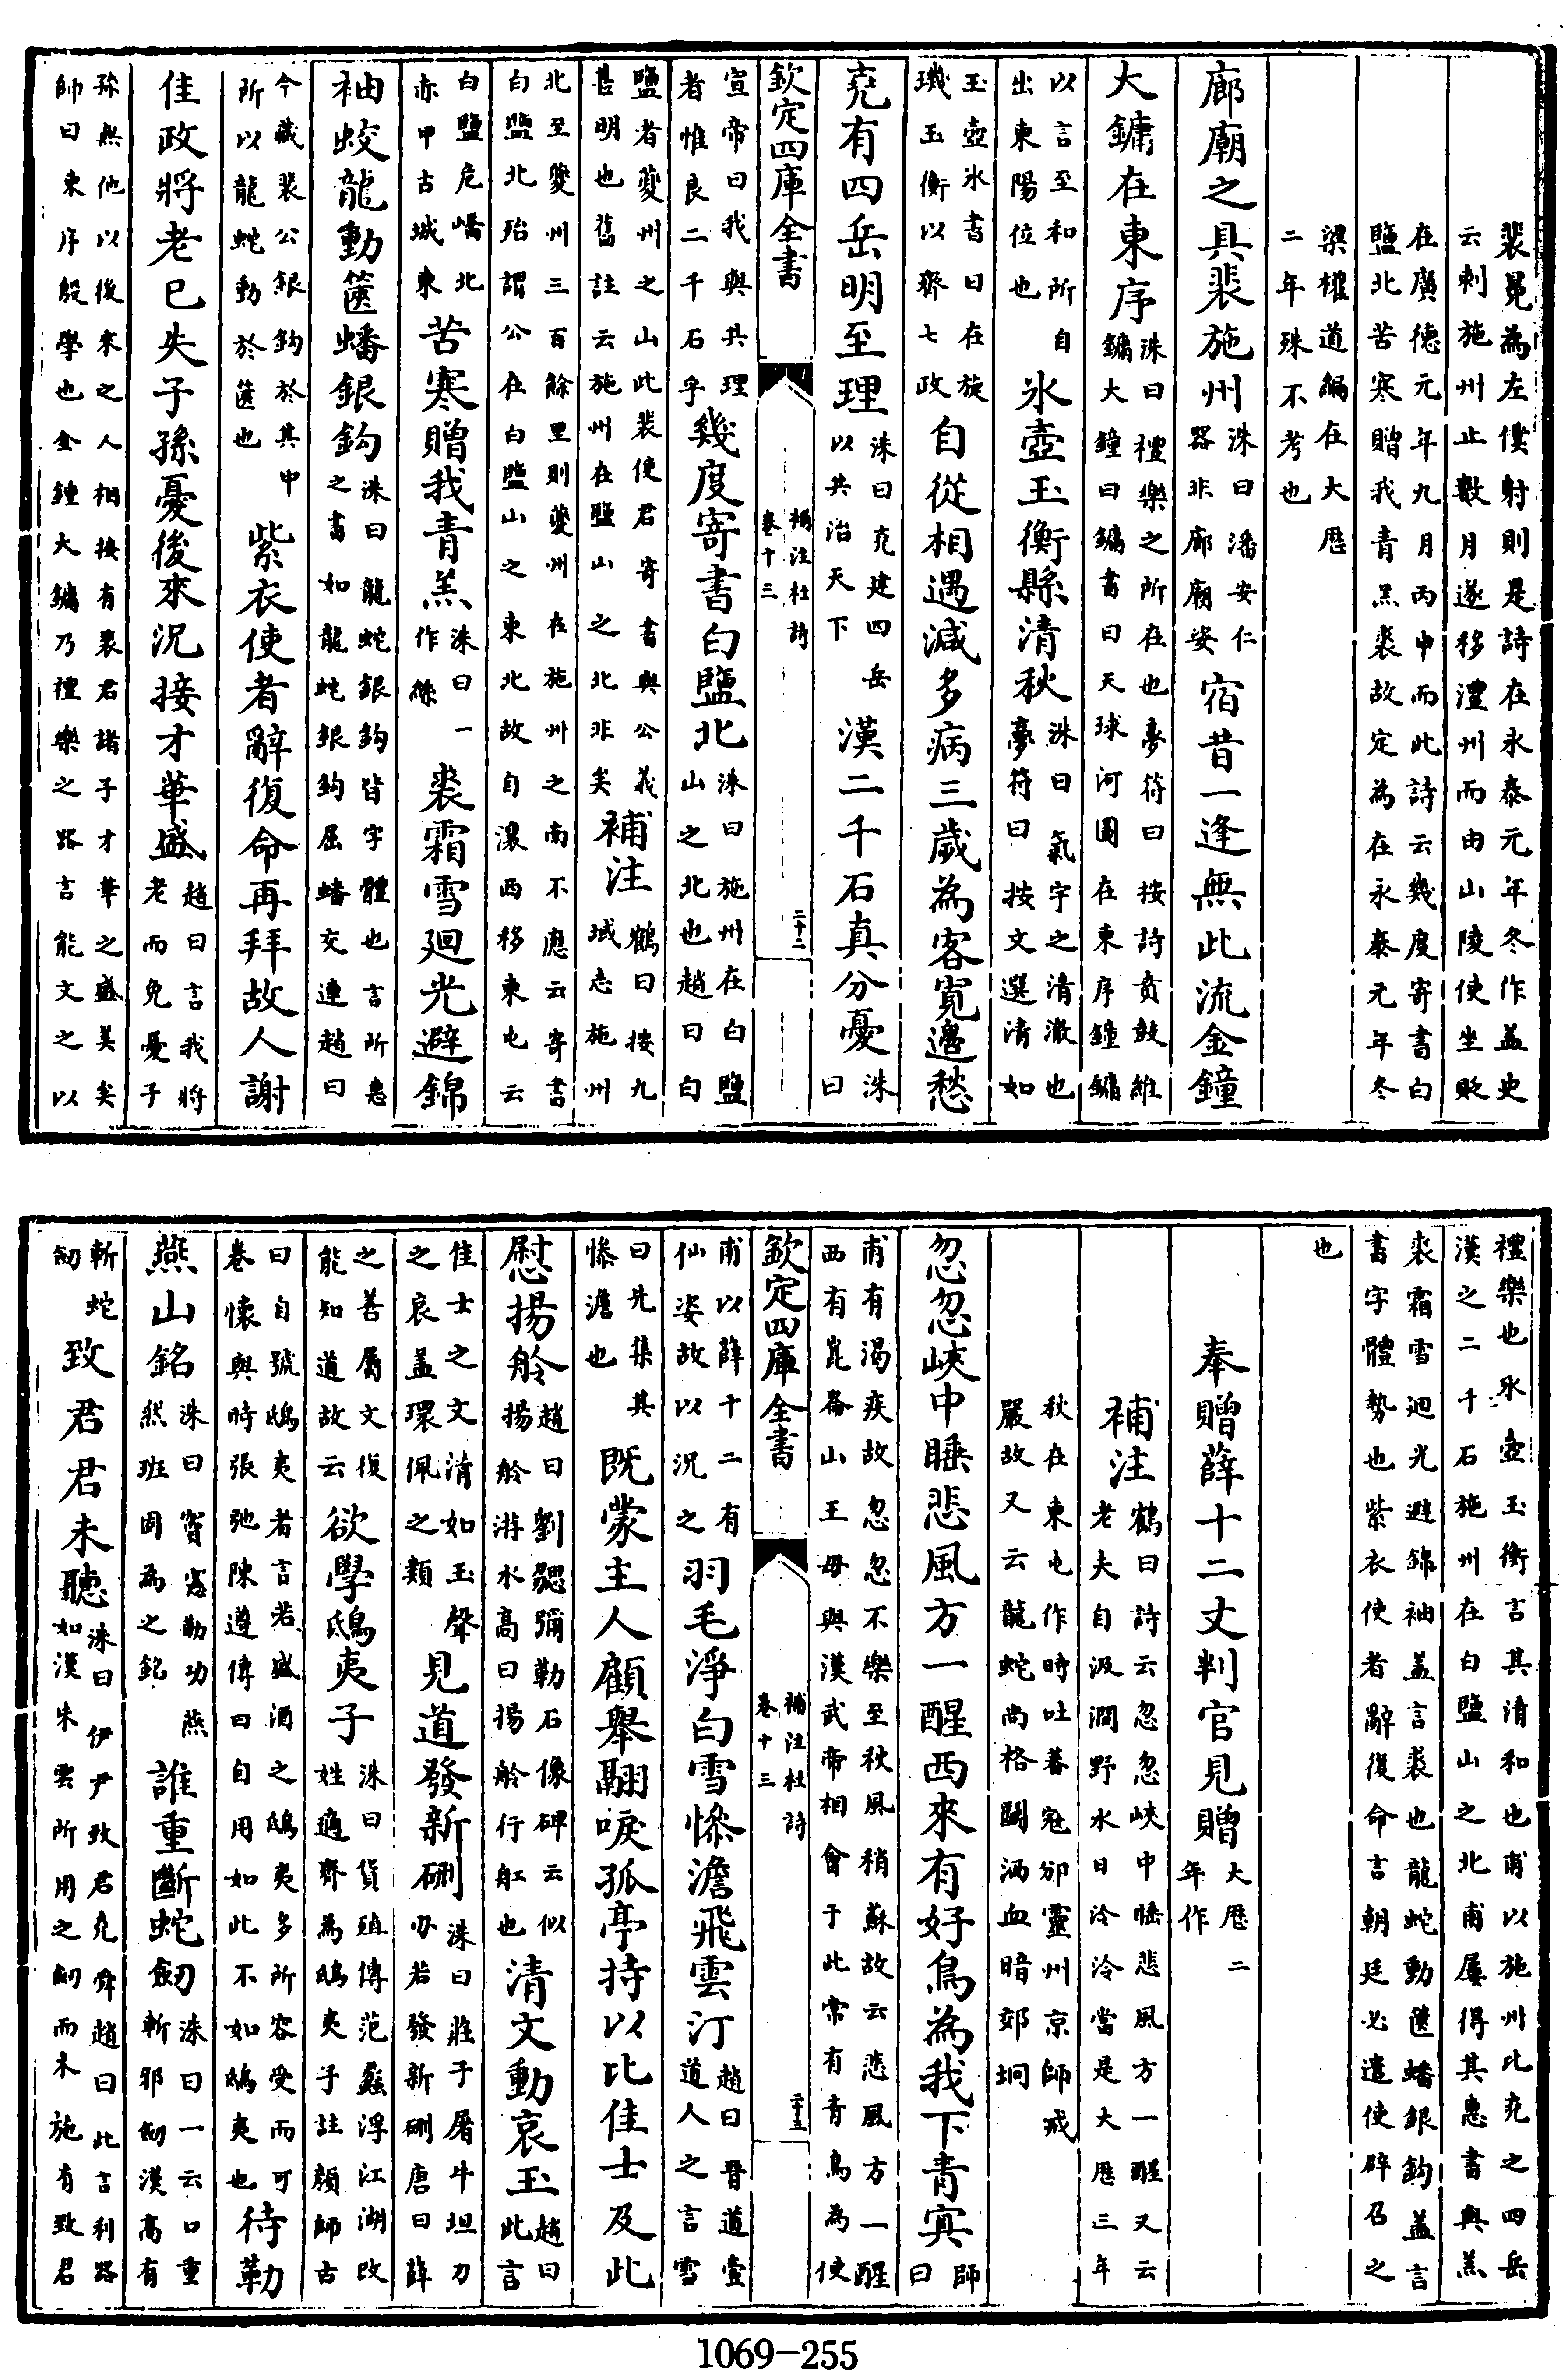 裴冕為左僕射則是詩在永泰元年冬作盖史
云刺施州止數月遂移澧州而由山陵使坐貶
在廣德元年九月丙申而此詩云幾度寄書白
鹽北苦寒贈我青羔裘故定為在永泰元年冬
梁權道編在大厯
二年殊不考也
廊廟之具裴施州洙曰潘安仁器非廊廟姿宿昔一逢無此流金鐘
大鏞在東序洙曰禮樂之所在也夢符曰按詩賁鼓維鏞大鐘曰鏞書曰天球河圖在東序鐘鏞
以言至和所自出東陽位也氷壺玉衡縣清秋洙曰氣宇之清澈也夢符曰按文選清如
玉壺氷書曰在旋璣玉衡以齊七政自從相遇減多病三歲為客寛邊愁
堯有四岳明至理洙曰堯建四岳以共治天下漢二千石真分憂洙曰
欽定四庫全書
補注杜詩
卷十三
二十二
宣帝曰我與共理者惟良二千石乎幾度寄書白鹽北洙曰施州在白鹽山之北也趙曰白
鹽者䕫州之山此裴使君寄書與公義甚明也舊註云施州在鹽山之北非矣補注鶴曰按九域志施州
北至䕫州三百餘里則䕫州在施州之南不應云寄書白鹽北殆謂公在白鹽山之東北故自瀼西移東屯云
白鹽危嶠北赤甲古城東苦寒贈我青羔洙曰一作絲裘霜雪廻光避錦
袖蛟龍動篋蟠銀鈎洙曰龍蛇銀鈎皆字體也言所惠之書如龍蛇銀鈎屈蟠交連趙曰
今藏裴公銀鈎於其中所以龍蛇動於篋也紫衣使者辭復命再拜故人謝
佳政將老已失子孫憂後來況接才華盛趙曰言我將老而免憂子
孫無他以後来之人相接有裴君諸子才華之盛美矣
師曰東序殷學也金鍾大鏞乃禮樂之器言能文之以
禮樂也氷壺玉衡言其清和也甫以施州比堯之四岳
漢之二千石施州在白鹽山之北甫屢得其惠書與羔
裘霜雪迴光避錦袖盖言裘也龍蛇動篋蟠銀鈎盖言
書字體勢也紫衣使者辭復命言朝廷必遣使辟召之
也
奉贈薛十二丈判官見贈大厯二年作
補注鶴曰詩云忽忽峽中睡悲風方一醒又云老夫自汲澗野水日泠泠當是大厯三年
秋在東屯作時吐蕃宼邠靈州京師戒
嚴故又云龍蛇尚格鬭洒血暗郊坰
忽忽峽中睡悲風方一醒西來有好鳥為我下青冥師曰
甫有渴疾故忽忽不樂至秋風稍蘇故云悲風方一醒
西有崑崙山王母與漢武帝相會于此常有青鳥為使
欽定四庫全書
補注杜詩
卷十三
二十三
甫以薛十二有仙姿故以況之羽毛淨白雪慘澹飛雲汀趙曰晉道壹道人之言雪
曰先集其慘澹也既蒙主人顧舉翮唳孤亭持以比佳士及此
慰揚舲趙曰劉勰彌勒石像碑云似揚舲游水高曰揚舲行舡也清文動哀玉趙曰此言
佳士之文清如玉聲之哀盖環佩之類見道發新硎洙曰莊子屠牛坦刀刃若發新硎唐曰薛
之善屬文復能知道故云欲學鴟夷子洙曰貨殖傳范蠡浮江湖改姓適齊為鴟夷子註顔師古
曰自號鴟夷者言若盛酒之鴟夷多所容受而可卷懷與時張弛陳遵傳曰自用如此不如鴟夷也待勒
燕山銘洙曰竇憲勒功燕然班固為之銘誰重斷蛇劒洙曰一云口重斬邪劒漢高有
斬蛇劒致君君未聽洙曰伊尹致君堯舜趙曰此言利器如漢朱雲所用之劒而未施有致君
1069-255